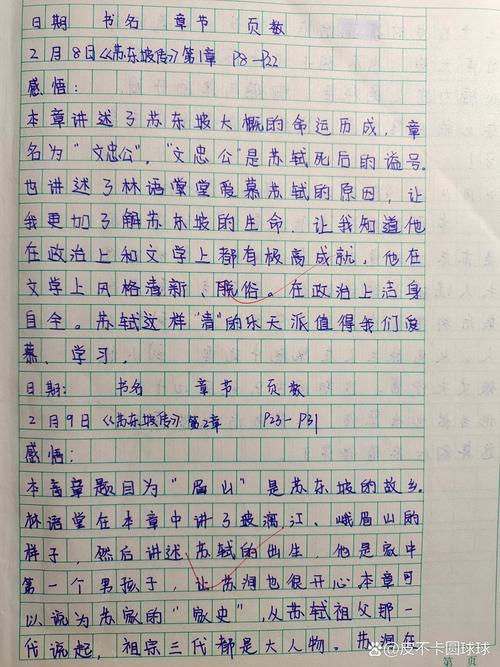 日期 书名 章节 页数
2月8日《苏东坡传》第1章 P8-P22
感悟:
本章讲述了苏东坡大概的命运历成,章
名为“文忠公”。“文忠公”是苏轼死后的谥号。
也讲述了林语堂爱慕苏轼的原因,让
我更加了解苏东坡的生命,让我知道他
在政治上和文学上都有极高成就,他在
文学上风格清新、脱俗。在政治上洁身
自令。苏轼这样“清”的乐天派值得我们爱
慕、学习.
日期: 书名 章节 页数
2月9日《苏东坡传》第2章 P23-P31
感悟:
本章题目为“眉山”是苏东坡的故乡。
林语堂在本章中讲了玻漓江、峨眉山的
样子,然后讲述苏轼的出生,他是家中
第一个男孩子,让苏洵也很开心本章可
以说为苏家的“家史”,从苏轼祖父那一
代说起,祖宗三代都是大人物。苏洵在
第 页
@皮不卡圆球球